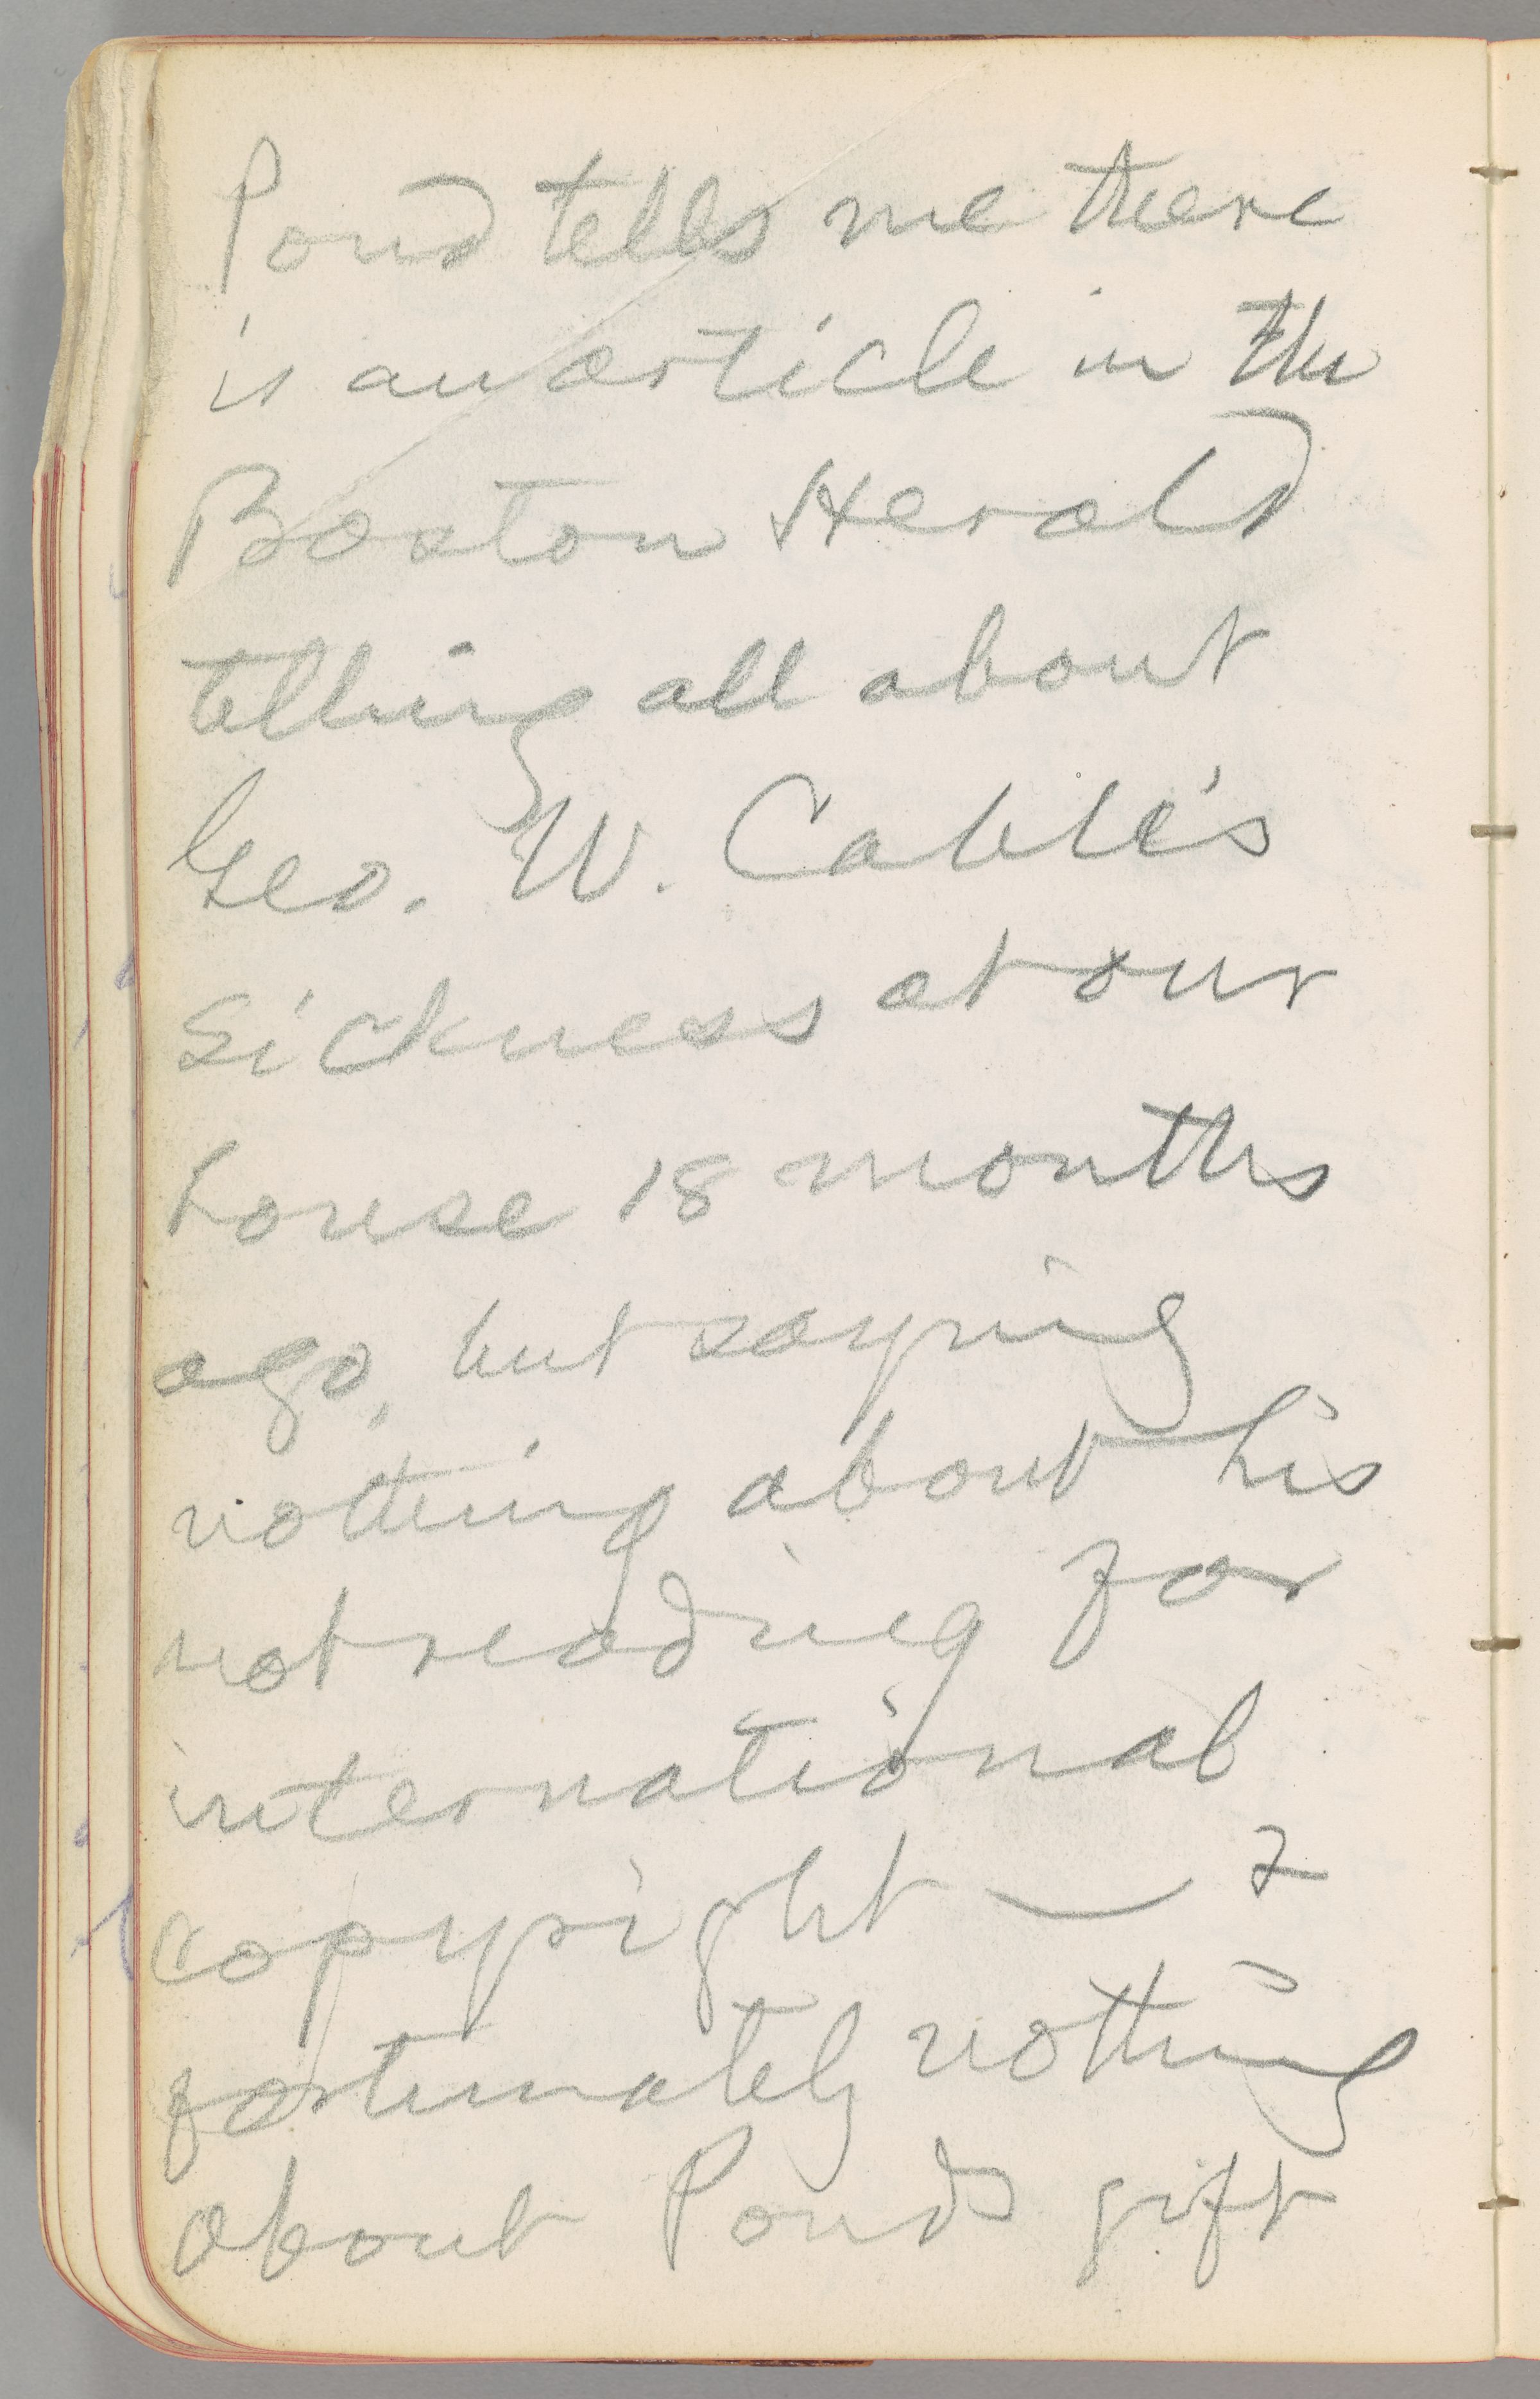 Pond tells me there
is an article in the
Boston Herald
telling all about
Geo. W. Cable's
sickness at our
house 18 months
ago, but saying
nothing about his
not reading for
international
copyright — &
fortunately nothing
about Pond's gift